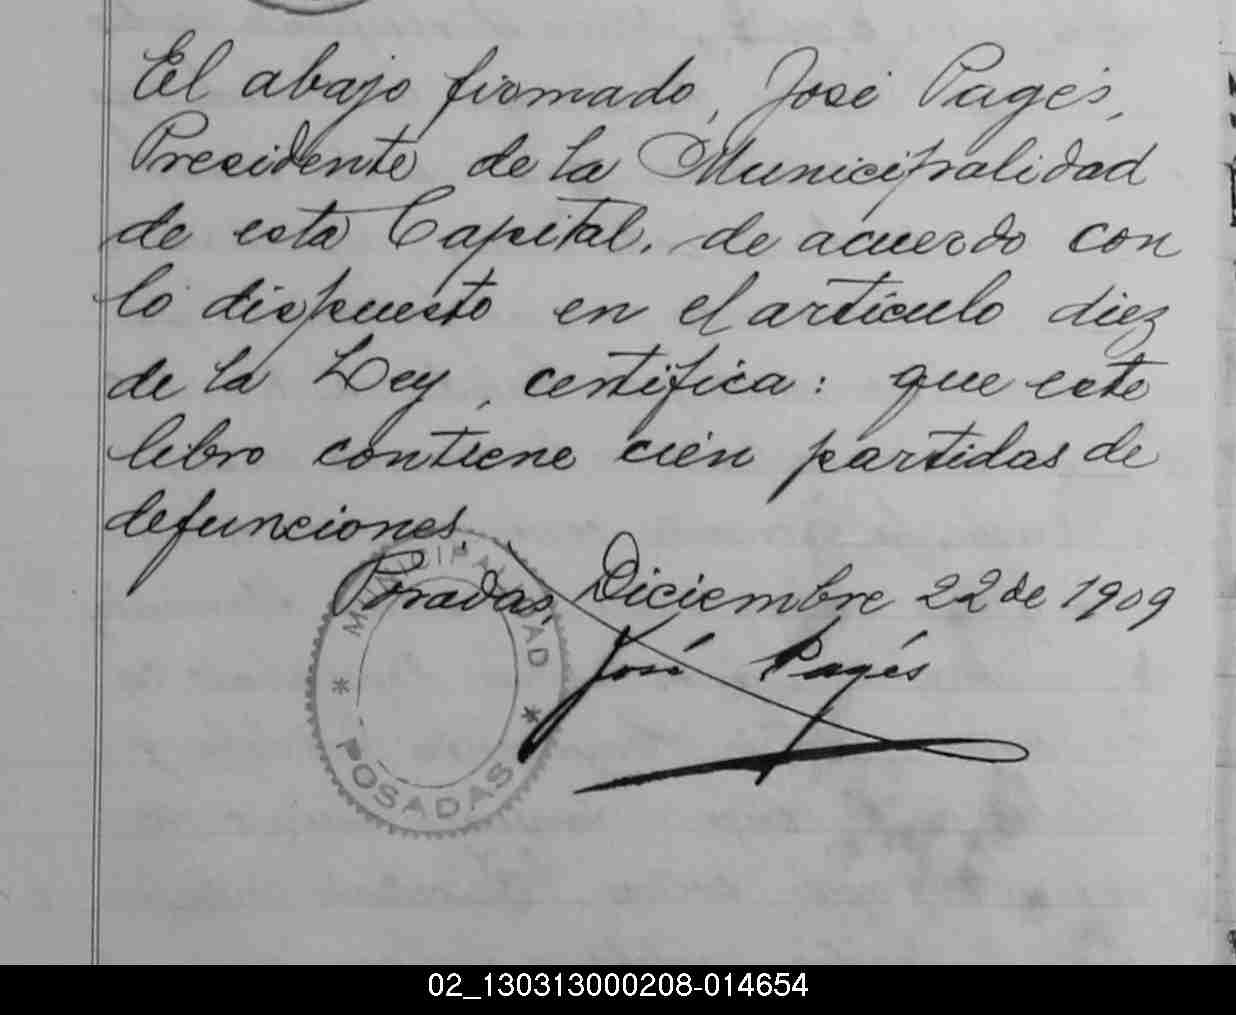 El abajo firmado, José Pagés,
Presidente de la Municipalidad
de esta Capital, de acuerdo con
lo dispuesto en el artículo diez
de la Ley, certifica: que este
libro contiene cién partidas de
defunciones.
Posadas, Diciembre 22 de 1909
José Pagés
MUNICIPALIDAD
* *
POSADAS
02_130313000208-014654